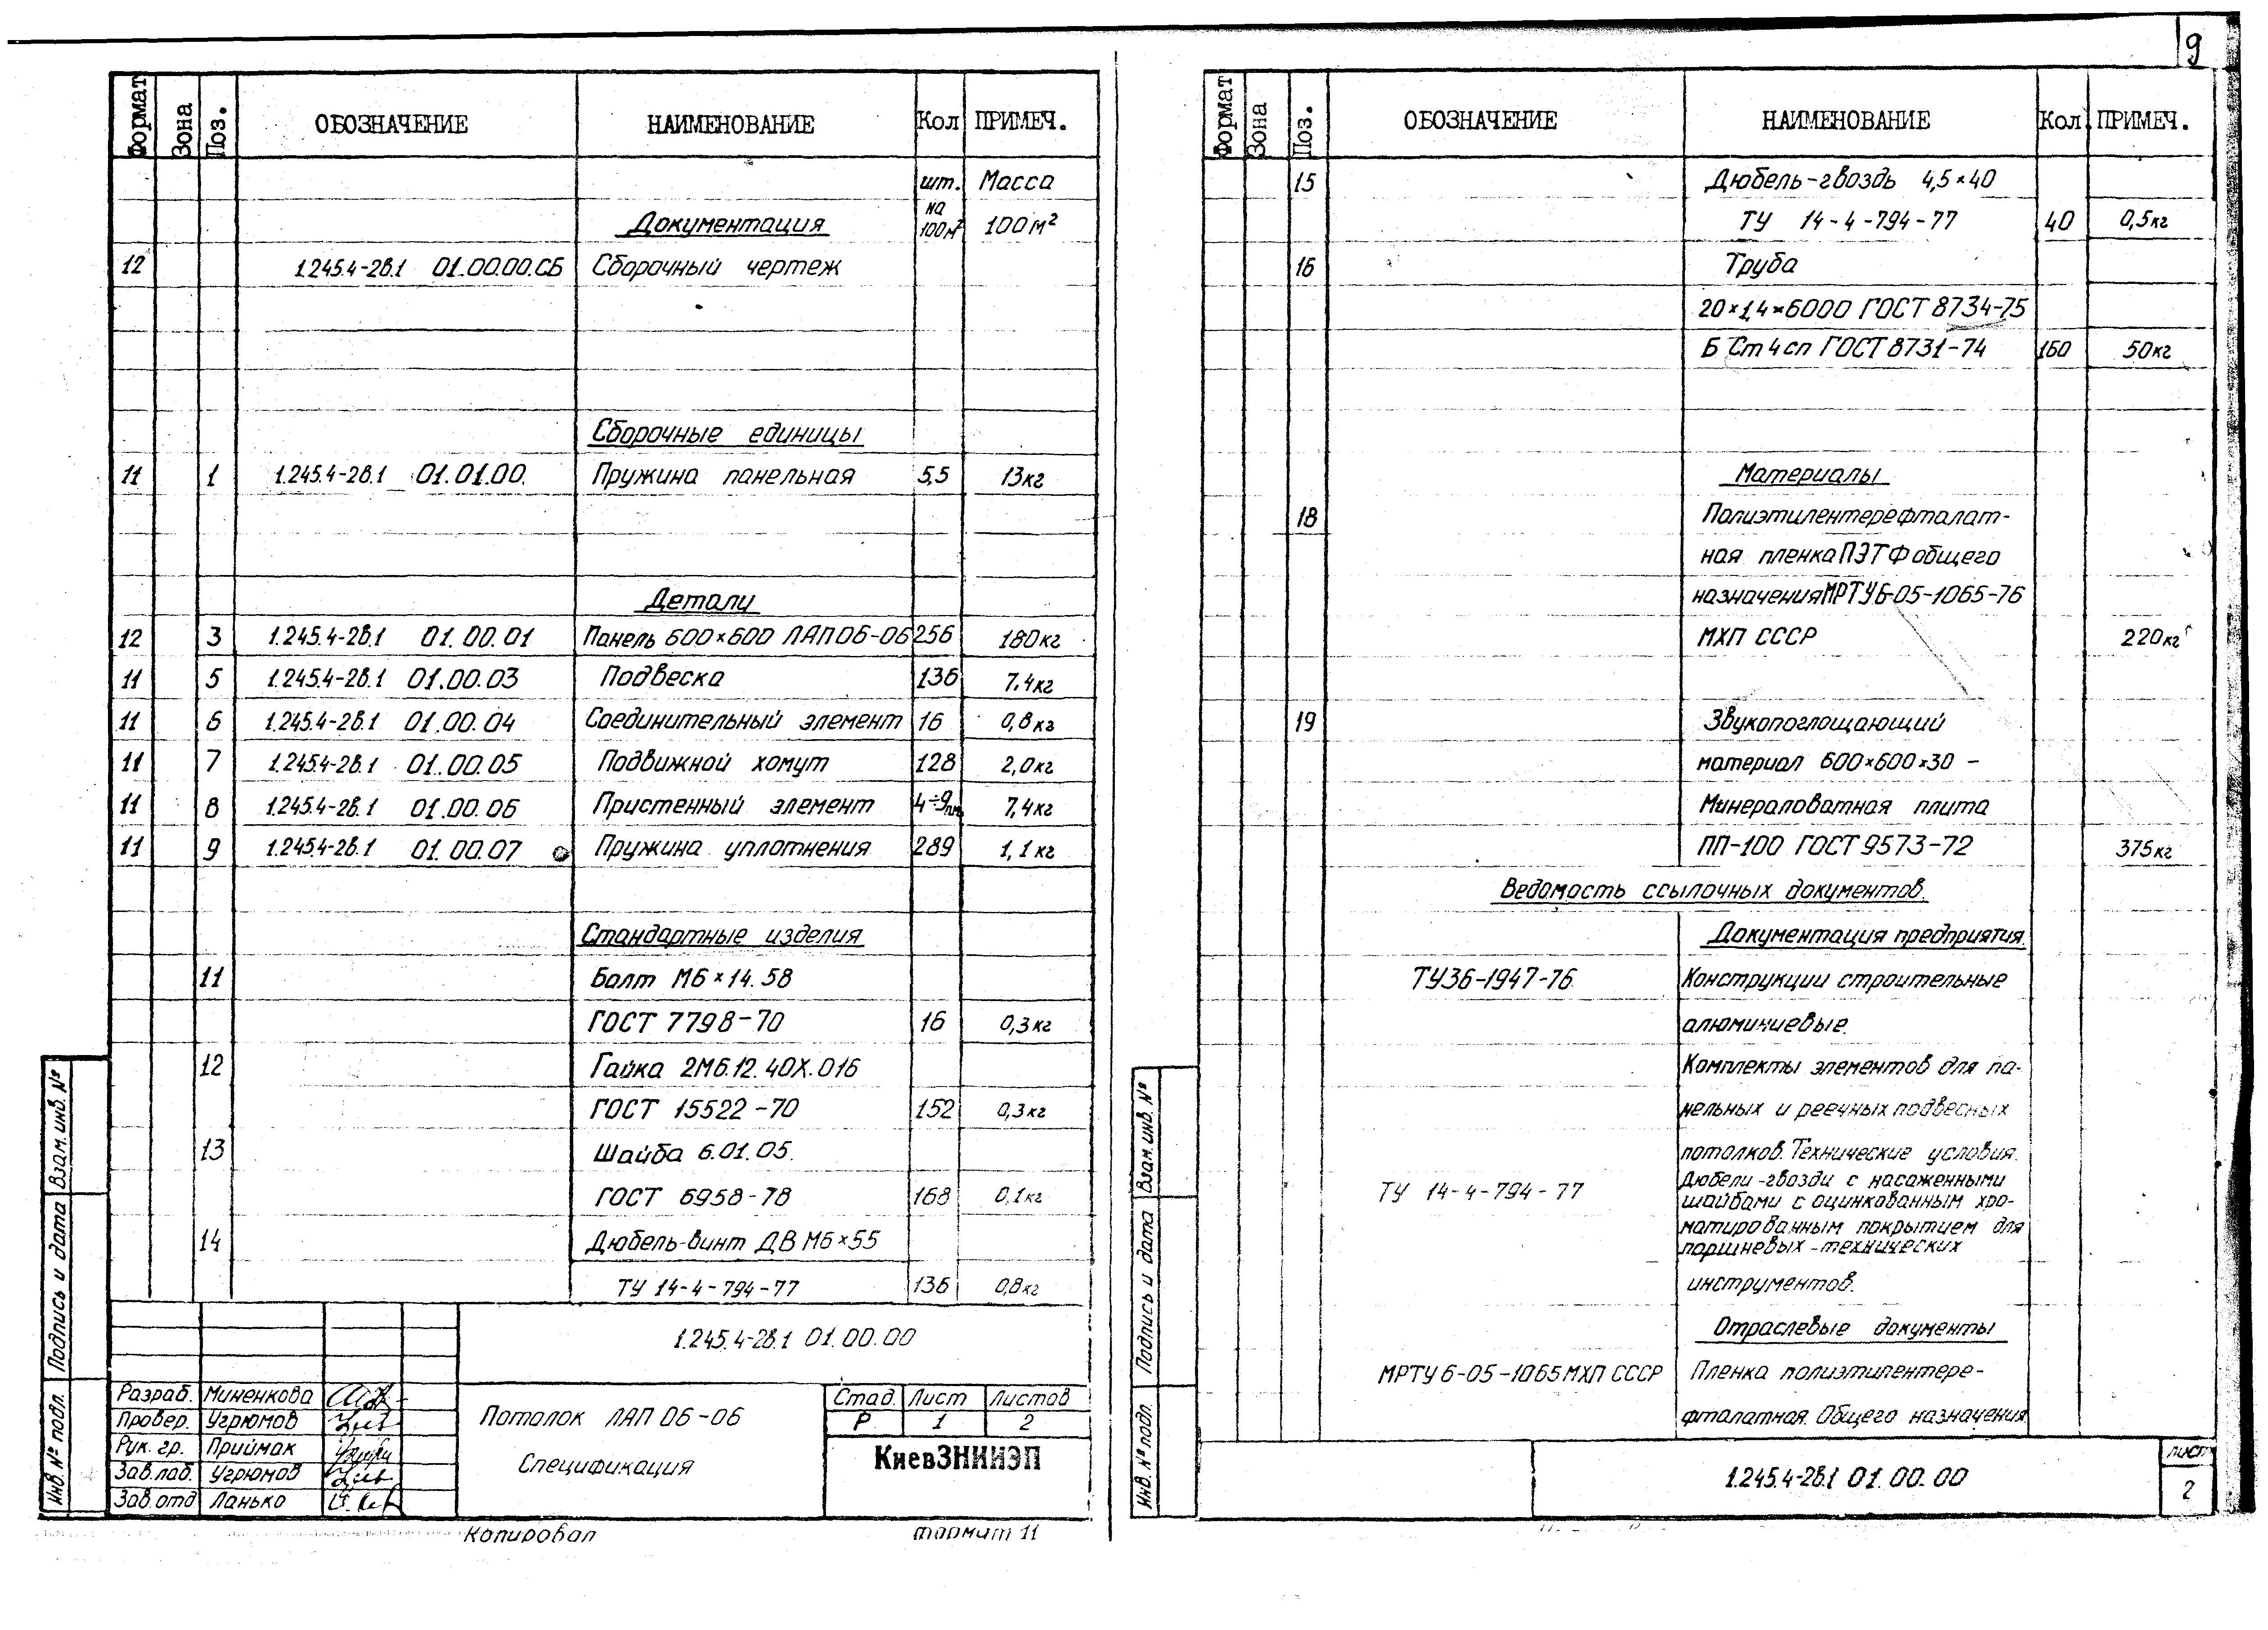 9
Формат Зона Поз. ОБОЗНАЧЕНИЕ НАИМЕНОВАНИЕ Кол ПРИМЕЧ.
шт. Масса
на
Документация 100м² 100м²
12 1.245.4-2в.1 01.00.00.СБ Сборочный чертеж
Сборочные единицы
11 1 1.245.4-2в.1 01.01.00. Пружина панельная 5,5 13кг
Детали
12 3 1.245.4-2в.1 01.00.01 Панель 600×600 ЛАП 06-06 256 180кг
11 5 1.245.4-2в.1 01.00.03 Подвеска 136 7.4кг
11 6 1.245.4-2в.1 01.00.04 Соединительный элемент 16 0,8кг
11 7 1.245.4-2в.1 01.00.05 Подвижной хомут 128 2,0кг
11 8 1.245.4-2в.1 01.00.06 Пристенный элемент 4÷9 7,4кг
11 9 1.245.4-2в.1 01.00.07 Пружина уплотнения 289 1,1кг
Стандартные изделия
11 Болт М6×14.58
ГОСТ 7798-70 16 0,3кг
12 Гайка 2М6.12.40Х.016
ГОСТ 15522-70 152 0,3кг
13 Шайба 6.01.05.
ГОСТ 6958-78 168 0.1кг
14 Дюбель-винт ДВ М6×55
ТУ 14-4-794-77 136 0,8кг
1.245.4-2в.1 01.00.00
Разраб. Миненкова
Провер. Угрюмов
Рук. гр. Приймак
Зав.лаб. Угрюмов
Зав.отд Ланько
Потолок ЛАП 06-06
Спецификация
Стад. Лист Листов
Р 1 2
КиевЗНИИЭП
Инв. № подл. Подпись и дата Взам. инв. №
Копировал формат 11
Формат Зона Поз. ОБОЗНАЧЕНИЕ НАИМЕНОВАНИЕ Кол. ПРИМЕЧ.
15 Дюбель-гвоздь 4,5×40
ТУ 14-4-794-77 40 0,5кг
16 Труба
20×1,4×6000 ГОСТ 8734-75
Б Ст4сп ГОСТ 8731-74 160 50кг
Материалы
18 Полиэтилентерефталат-
ная пленка ПЭТФ общего
назначения МРТУ6-05-1065-76
МХП СССР 220кг
19 Звукопоглощающий
материал 600×600×30 -
Минераловатная плита
ПП-100 ГОСТ 9573-72 375кг
Ведомость ссылочных документов.
Документация предприятия.
ТУ36-1947-76 Конструкции строительные
алюминиевые.
Комплекты элементов для па-
нельных и реечных подвесных
потолков. Технические условия.
ТУ 14-4-794-77 Дюбели-гвозди с насаженными
шайбами с оцинкованным хро-
матированным покрытием для
поршневых-технических
инструментов.
Отраслевые документы
МРТУ 6-05-1065 МХП СССР Пленка полиэтилентере-
фталатная. Общего назначения
1.245.4-2в.1 01.00.00
лист
2
Инв. № подл. Подпись и дата Взам. инв. №